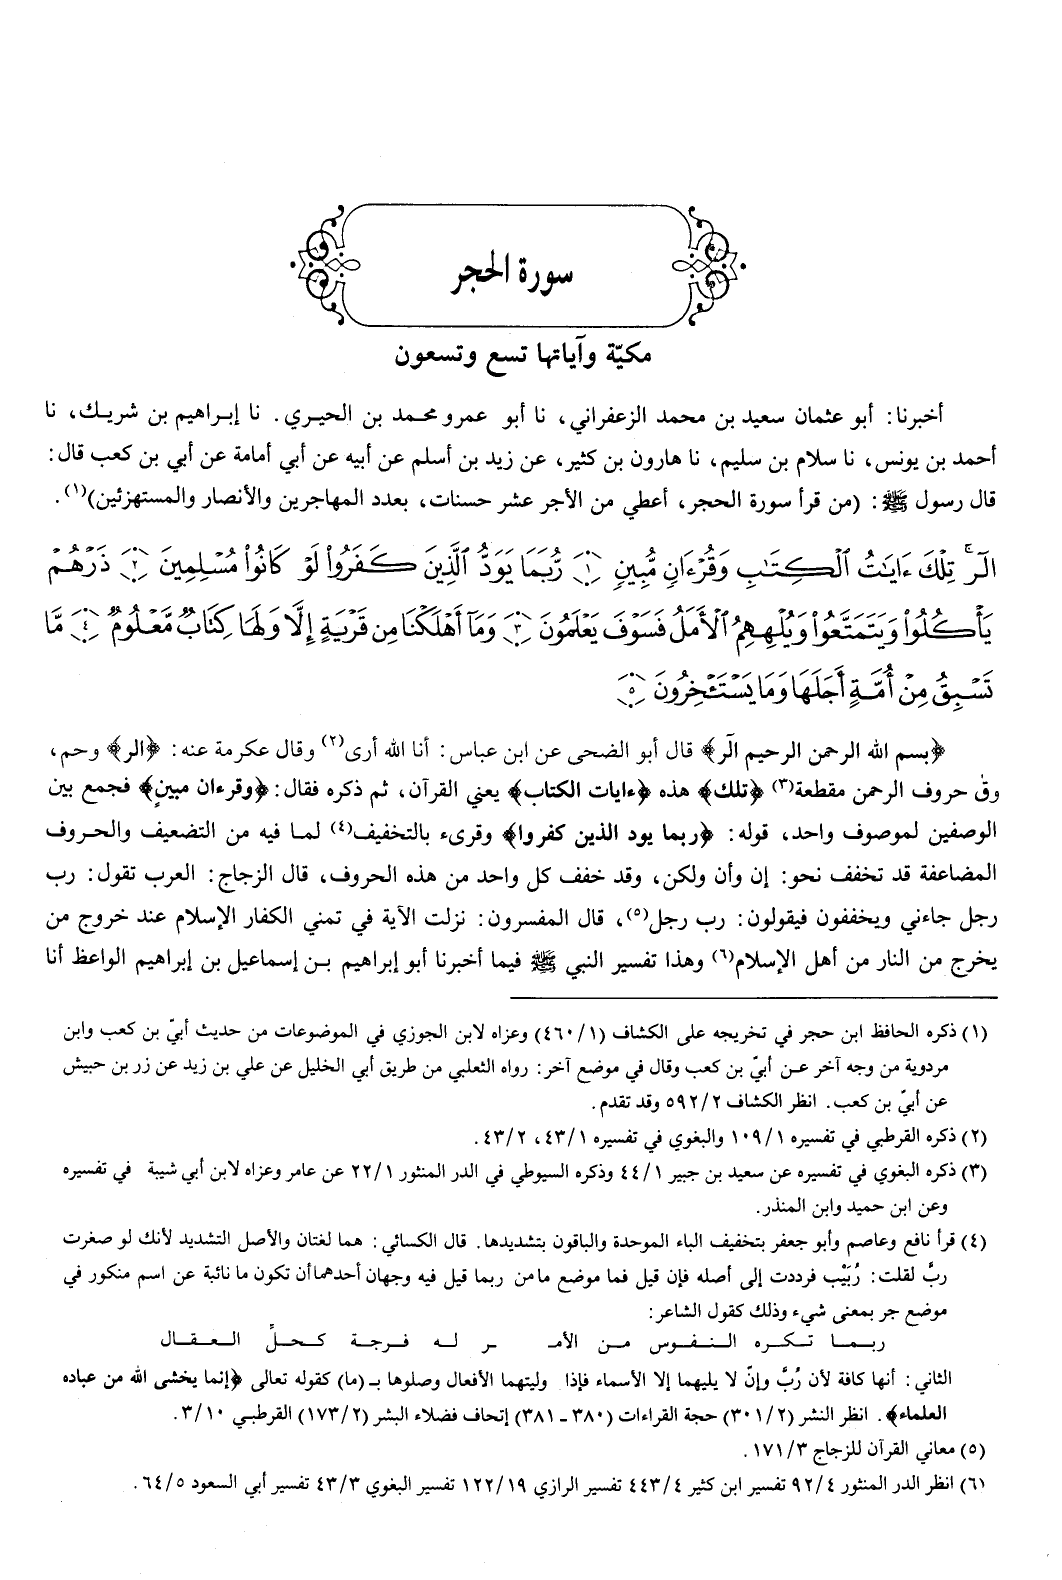 سورة الحجر
مكيّة وآياتها تسع وتسعون
أخبرنا: أبو عثمان سعيد بن محمد الزعفراني، نا أبو عمرو محمد بن الحيري. نا إبراهيم بن شريك، نا
أحمد بن يونس، نا سلام بن سليم، نا هارون بن كثير، عن زيد بن أسلم عن أبيه عن أبي أمامة عن أبي بن كعب قال:
قال رسول ﷺ: (من قرأ سورة الحجر، أعطي من الأجر عشر حسنات، بعدد المهاجرين والأنصار والمستهزئين)(١).
الٓرۚ تِلۡكَ ءَايَٰتُ ٱلۡكِتَٰبِ وَقُرۡءَانٖ مُّبِينٖ ١ رُّبَمَا يَوَدُّ ٱلَّذِينَ كَفَرُواْ لَوۡ كَانُواْ مُسۡلِمِينَ ٢ ذَرۡهُمۡ
يَأۡكُلُواْ وَيَتَمَتَّعُواْ وَيُلۡهِهِمُ ٱلۡأَمَلُۖ فَسَوۡفَ يَعۡلَمُونَ ٣ وَمَآ أَهۡلَكۡنَا مِن قَرۡيَةٍ إِلَّا وَلَهَا كِتَابٞ مَّعۡلُومٞ ٤ مَّا
تَسۡبِقُ مِنۡ أُمَّةٍ أَجَلَهَا وَمَا يَسۡتَـٔۡخِرُونَ ٥
﴿بسم الله الرحمن الرحيم الٓر﴾ قال أبو الضحى عن ابن عباس: أنا الله أرى(٢) وقال عكرمة عنه: ﴿الر﴾ وحم،
وق حروف الرحمن مقطعة(٣) ﴿تلك﴾ هذه ﴿ءايات الكتاب﴾ يعني القرآن، ثم ذكره فقال: ﴿وقرءان مبينٍ﴾ فجمع بين
الوصفين لموصوف واحد، قوله: ﴿ربما يود الذين كفروا﴾ وقرىء بالتخفيف(٤) لما فيه من التضعيف والحروف
المضاعفة قد تخفف نحو: إن وأن ولكن، وقد خفف كل واحد من هذه الحروف، قال الزجاج: العرب تقول: رب
رجل جاءني ويخففون فيقولون: رب رجل(٥)، قال المفسرون: نزلت الآية في تمني الكفار الإسلام عند خروج من
يخرج من النار من أهل الإسلام(٦) وهذا تفسير النبي ﷺ فيما أخبرنا أبو إبراهيم بن إسماعيل بن إبراهيم الواعظ أنا
(١) ذكره الحافظ ابن حجر في تخريجه على الكشاف (٤٦٠/١) وعزاه لابن الجوزي في الموضوعات من حديث أبيّ بن كعب وابن
مردوية من وجه آخر عن أبيّ بن كعب وقال في موضع آخر: رواه الثعلبي من طريق أبي الخليل عن علي بن زيد عن زر بن حبيش
عن أبيّ بن كعب. انظر الكشاف ٥٩٢/٢ وقد تقدم.
(٢) ذكره القرطبي في تفسيره ١٠٩/١ والبغوي في تفسيره ٤٣/١، ٤٣/٢.
(٣) ذكره البغوي في تفسيره عن سعيد بن جبير ٤٤/١ وذكره السيوطي في الدر المنثور ٢٢/١ عن عامر وعزاه لابن أبي شيبة في تفسيره
وعن ابن حميد وابن المنذر.
(٤) قرأ نافع وعاصم وأبو جعفر بتخفيف الباء الموحدة والباقون بتشديدها. قال الكسائي: هما لغتان والأصل التشديد لأنك لو صغرت
ربَّ لقلت: رُبَيْب فرددت إلى أصله فإن قيل فما موضع ما من ربما قيل فيه وجهان أحدهما أن تكون ما نائبة عن اسم منكور في
موضع جر بمعنى شيء وذلك كقول الشاعر:
ربما تكره النفوس من الأمـ ـر له فرجة كحلِّ العقال
الثاني: أنها كافة لأن رُبَّ وإنّ لا يليهما إلا الأسماء فإذا وليتهما الأفعال وصلوها بـ (ما) كقوله تعالى ﴿إنما يخشى الله من عباده
العلماء﴾. انظر النشر (٣٠١/٢) حجة القراءات (٣٨٠ ـ ٣٨١) إتحاف فضلاء البشر (١٧٣/٢) القرطبي ٣/١٠.
(٥) معاني القرآن للزجاج ١٧١/٣.
(٦) انظر الدر المنثور ٩٢/٤ تفسير ابن كثير ٤٤٣/٤ تفسير الرازي ١٢٢/١٩ تفسير البغوي ٤٣/٣ تفسير أبي السعود ٦٤/٥.